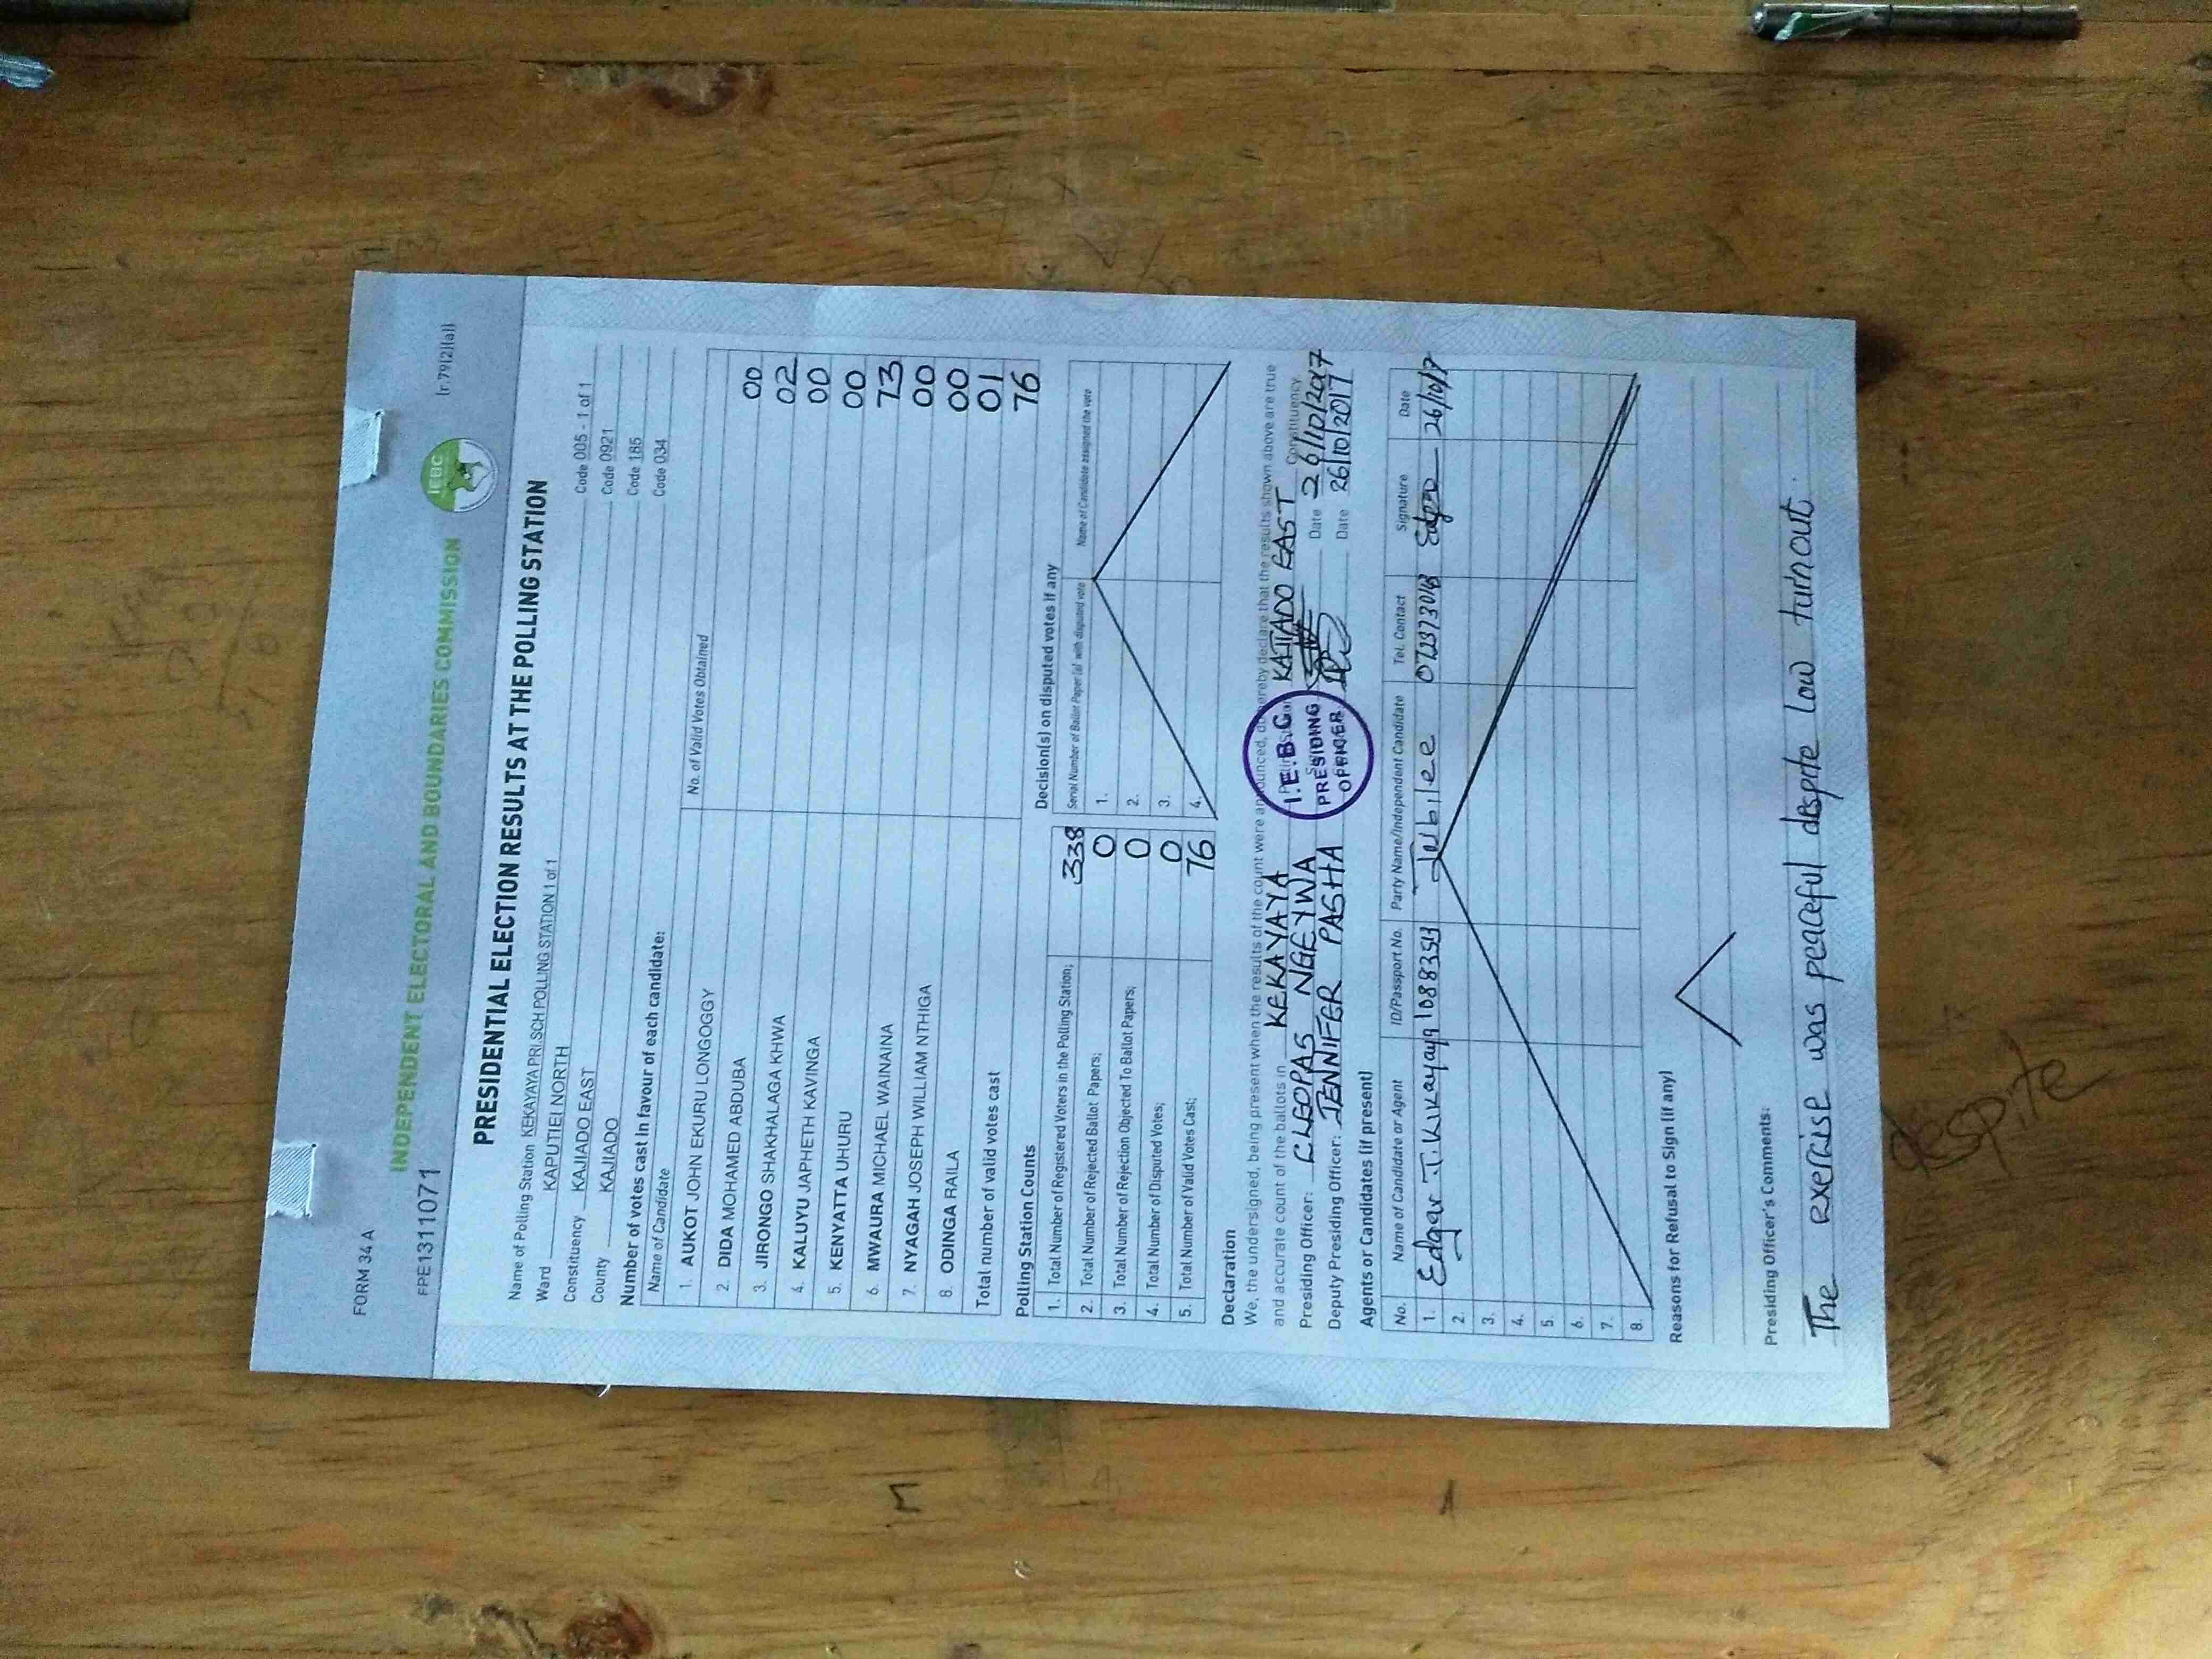 FORM 34 A
(r.79(2)(a))
INDEPENDENT ELECTORAL AND BOUNDARIES COMMISSION
IEBC
FPE1311071
PRESIDENTIAL ELECTION RESULTS AT THE POLLING STATION
Name of Polling Station KEKAYAYA PRI.SCH POLLING STATION 1 of 1 Code 005 - 1 of 1
Ward KAPUTIEI NORTH Code 0921
Constituency KAJIADO EAST Code 185
County KAJIADO Code 034
Number of votes cast in favour of each candidate:
Name of Candidate No. of Valid Votes Obtained
1. AUKOT JOHN EKURU LONGOGGY 00
2. DIDA MOHAMED ABDUBA 02
3. JIRONGO SHAKHALAGA KHWA 00
4. KALUYU JAPHETH KAVINGA 00
5. KENYATTA UHURU 73
6. MWAURA MICHAEL WAINAINA 00
7. NYAGAH JOSEPH WILLIAM NTHIGA 00
8. ODINGA RAILA 01
Total number of valid votes cast 76
Polling Station Counts
1. Total Number of Registered Voters in the Polling Station; 338
2. Total Number of Rejected Ballot Papers; 0
3. Total Number of Rejection Objected To Ballot Papers; 0
4. Total Number of Disputed Votes; 0
5. Total Number of Valid Votes Cast; 76
Decision(s) on disputed votes if any
Serial Number of Ballot Paper (s) with disputed vote Name of Candidate assigned the vote
1.
2.
3.
4.
Declaration
We, the undersigned, being present when the results of the count were announced, do hereby declare that the results shown above are true
and accurate count of the ballots in KEKAYAYA KAJIADO EAST Constituency
Presiding Officer: CLEOPAS NGEYWA Date 26/10/2017
Deputy Presiding Officer: JENNIFER PASHA Date 26/10/2017
I.E.B.C
PRESIDING
OFFICER
Agents or Candidates (if present)
No. Name of Candidate or Agent ID/Passport No. Party Name/Independent Candidate Tel. Contact Signature Date
1. Edgar .T. Kikayaya 10883513 Jubilee 26/10/17
2.
3.
4.
5.
6.
7.
8.
Reasons for Refusal to Sign (if any)
Presiding Officer's Comments:
The exercise was peaceful despite low turnout.
despite